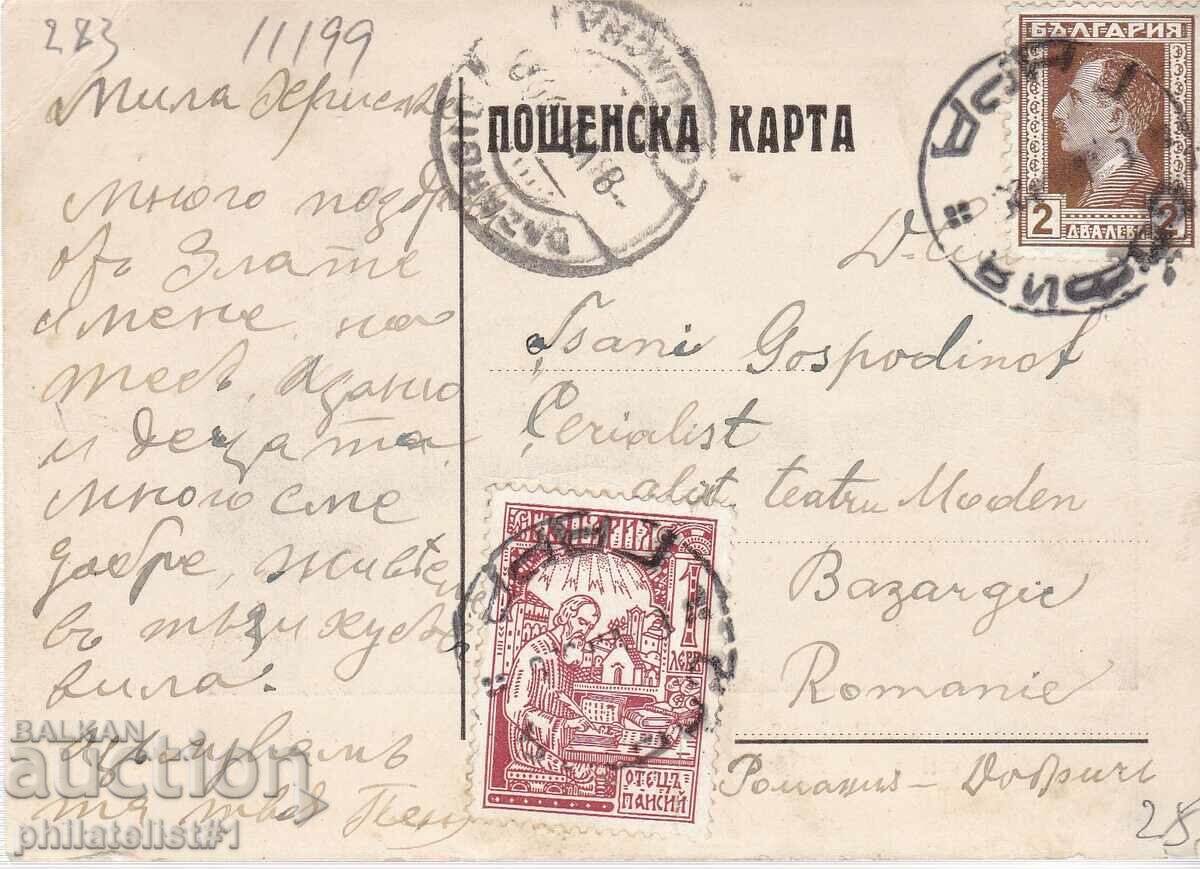 283 11199
Мила
много
отъ Злате
и мене на
тебъ,
и децата
много сме
добре, живѣем
въ
вила.
цѣлувамъ
та твоя Пен
ПОЩЕНСКА КАРТА
БЪЛГАРИЯ
2 ДВА ЛЕВА 2
BAZARGIC
Tsani Gospodinof
Cerialist
teatru Moden
Bazargic
Romanie
Романия - Добричъ
28
БЪЛГАРИЯ
1
ЛЕВЪ
ОТЕЦЪ
ПАИСИЙ
BALKAN
auction
philatelist#1